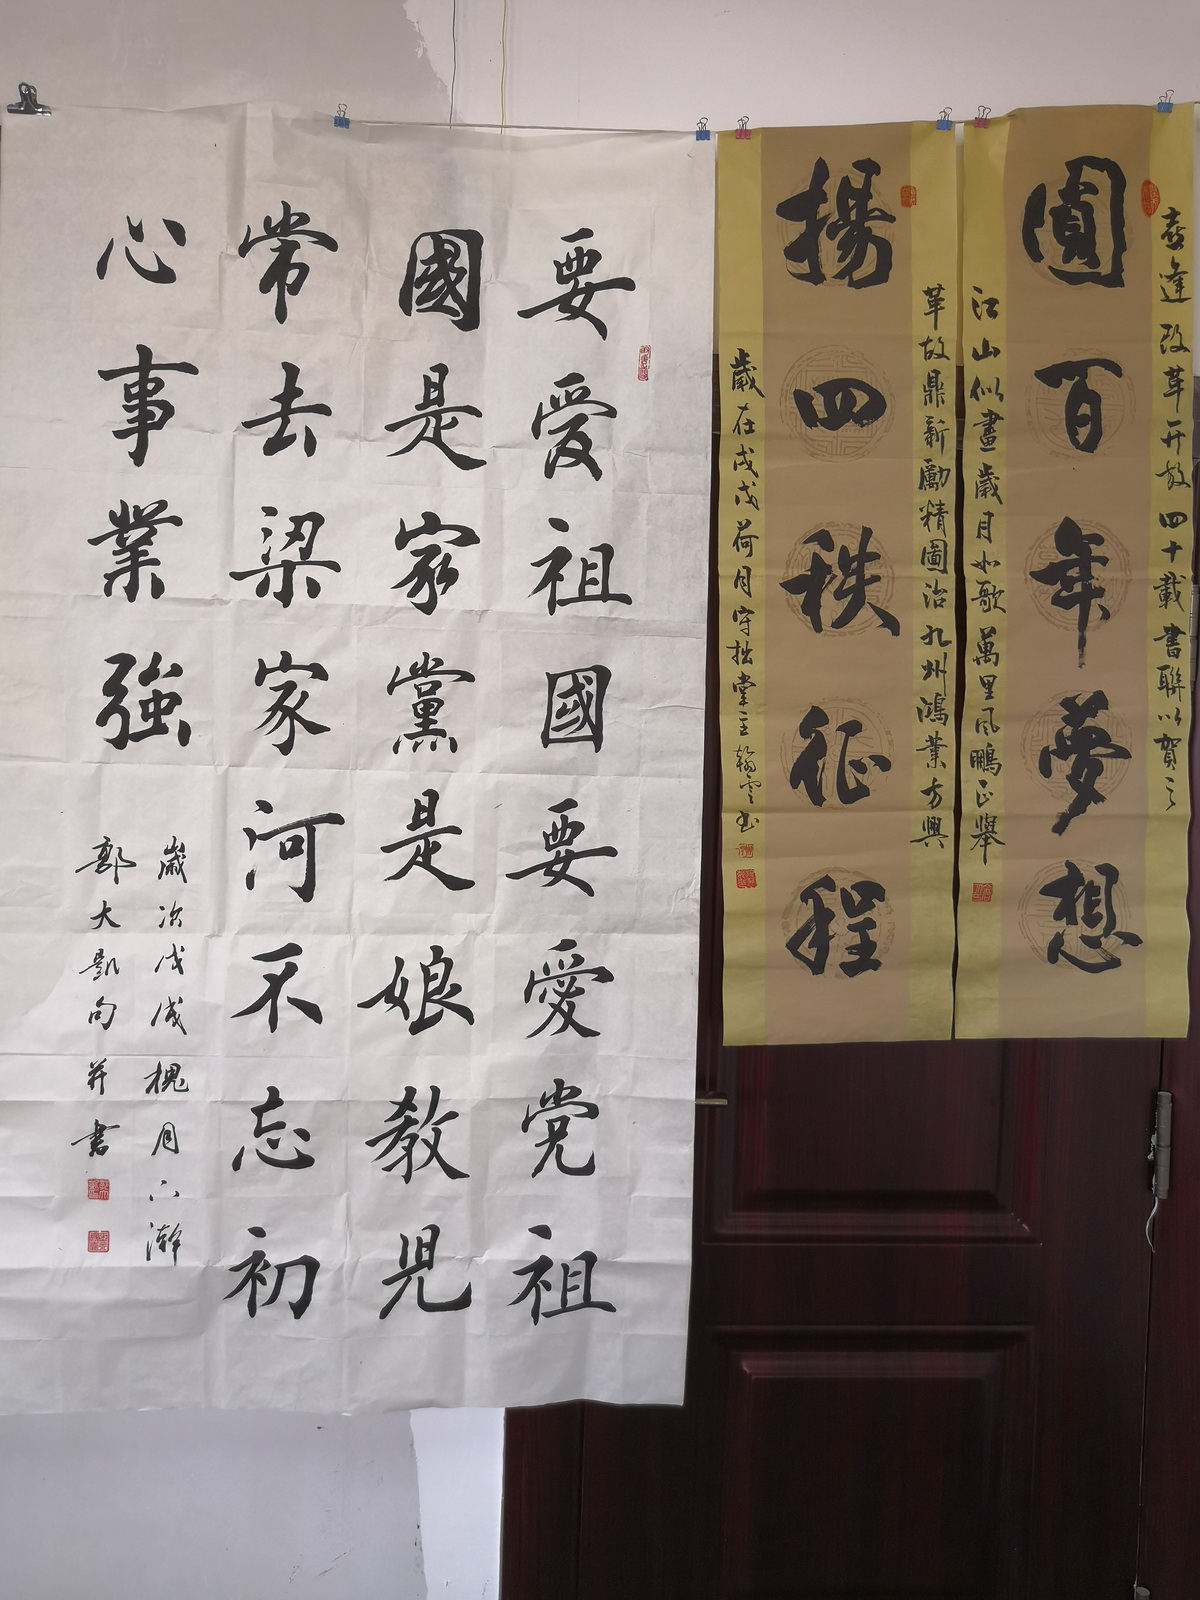 喜逢改革开放四十載書聯以賀之
圆百年夢想
江山似畫歲月如歌萬里風鵬正舉
革故鼎新勵精圖治九州鴻業方興
揚四秩征程
歲在戊戌荷月守拙堂主翰雲书
要愛祖國要愛党祖
國是家黨是娘教児
常去梁家河不忘初
心事業強
歲次戊戌槐月
郭大凱句并書